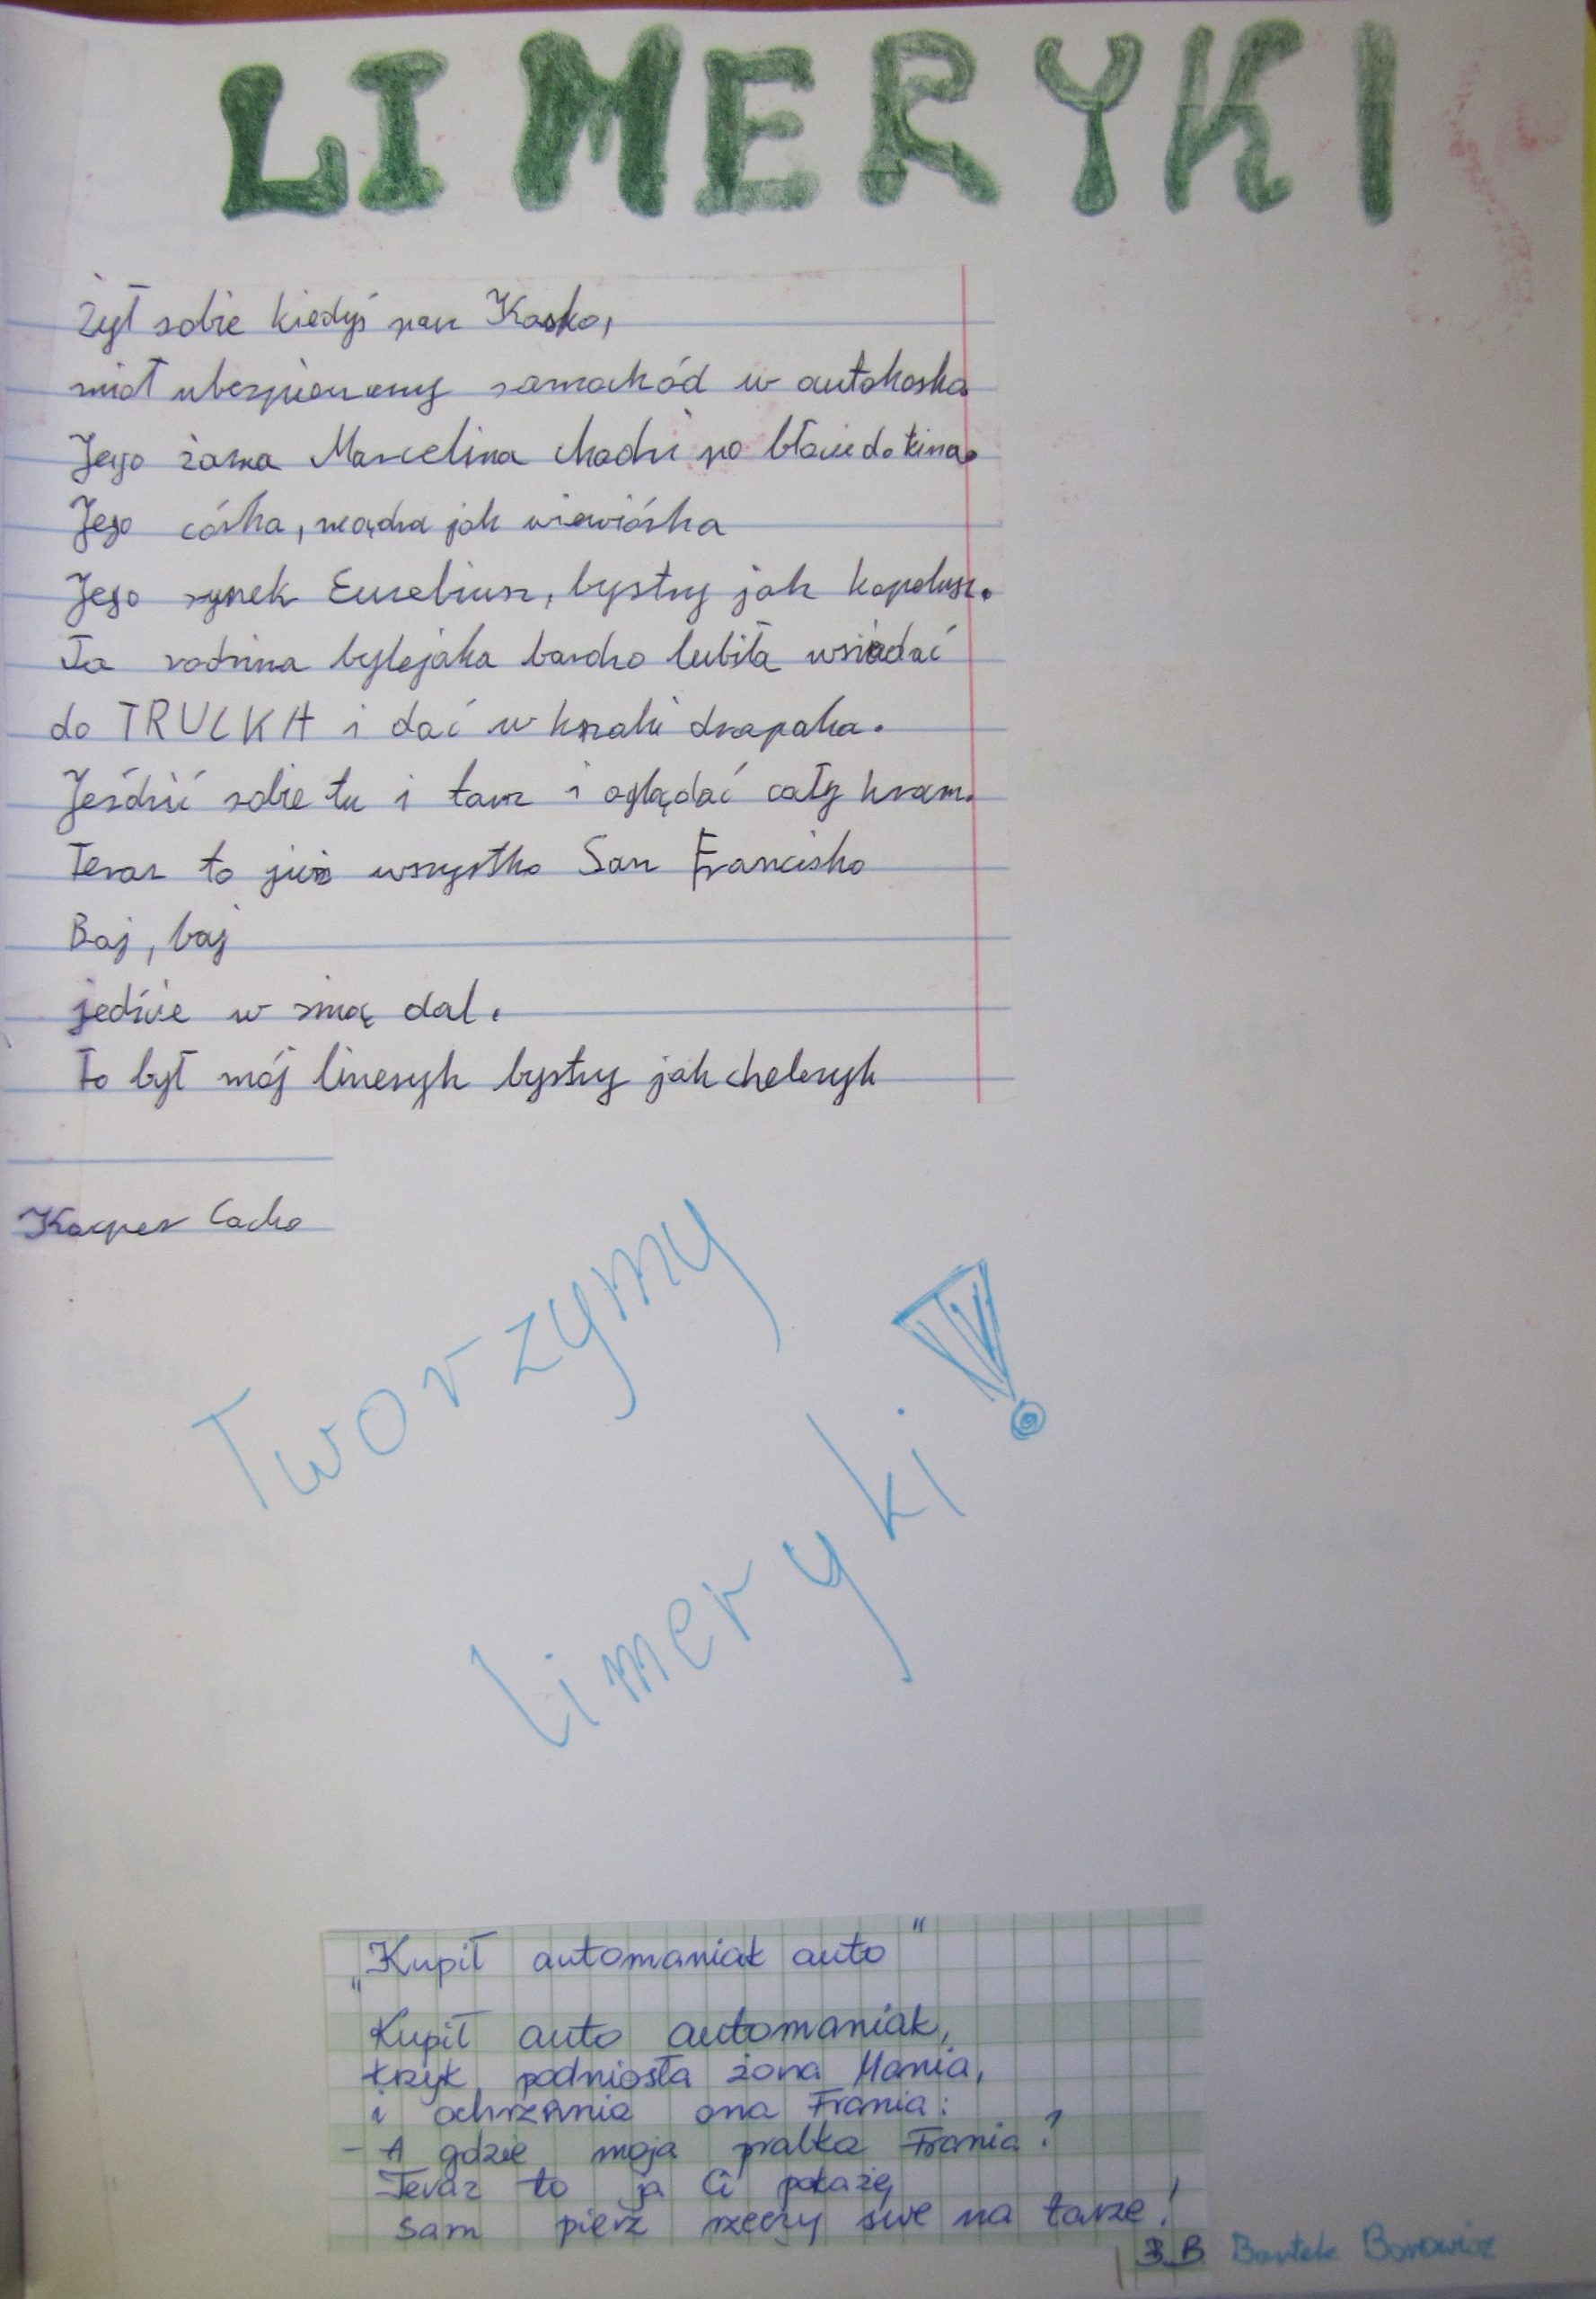 LIMERYKI
Żył sobie kiedyś pan Kasko,
miał ubezpieczony samochód w autokasko.
Jego żona Marcelina chodzi po błocie do kina.
Jego córka, mądra jak wiewiórka
Jego synek Euzebiusz, bystry jak kapelusz.
Ta rodzina bylejaka bardzo lubiła wsiadać
do TRUCKA i dać w krzaki drapaka.
Jeździć sobie tu i tam i oglądać cały kram.
Teraz to już wszystko San Francisko
Baj, baj
jedźcie w siną dal.
To był mój limeryk bystry jak choleryk
Kacper Cacko
Tworzymy
limeryki!
„Kupił automaniak auto"
Kupił auto automaniak,
krzyk podniosła żona Mania,
i ochrzania ona Frania:
- A gdzie moja pralka Frania?
Teraz to ja Ci pokażę
sam pierz rzeczy swe na tarze!
B.B Bartek Borowicz